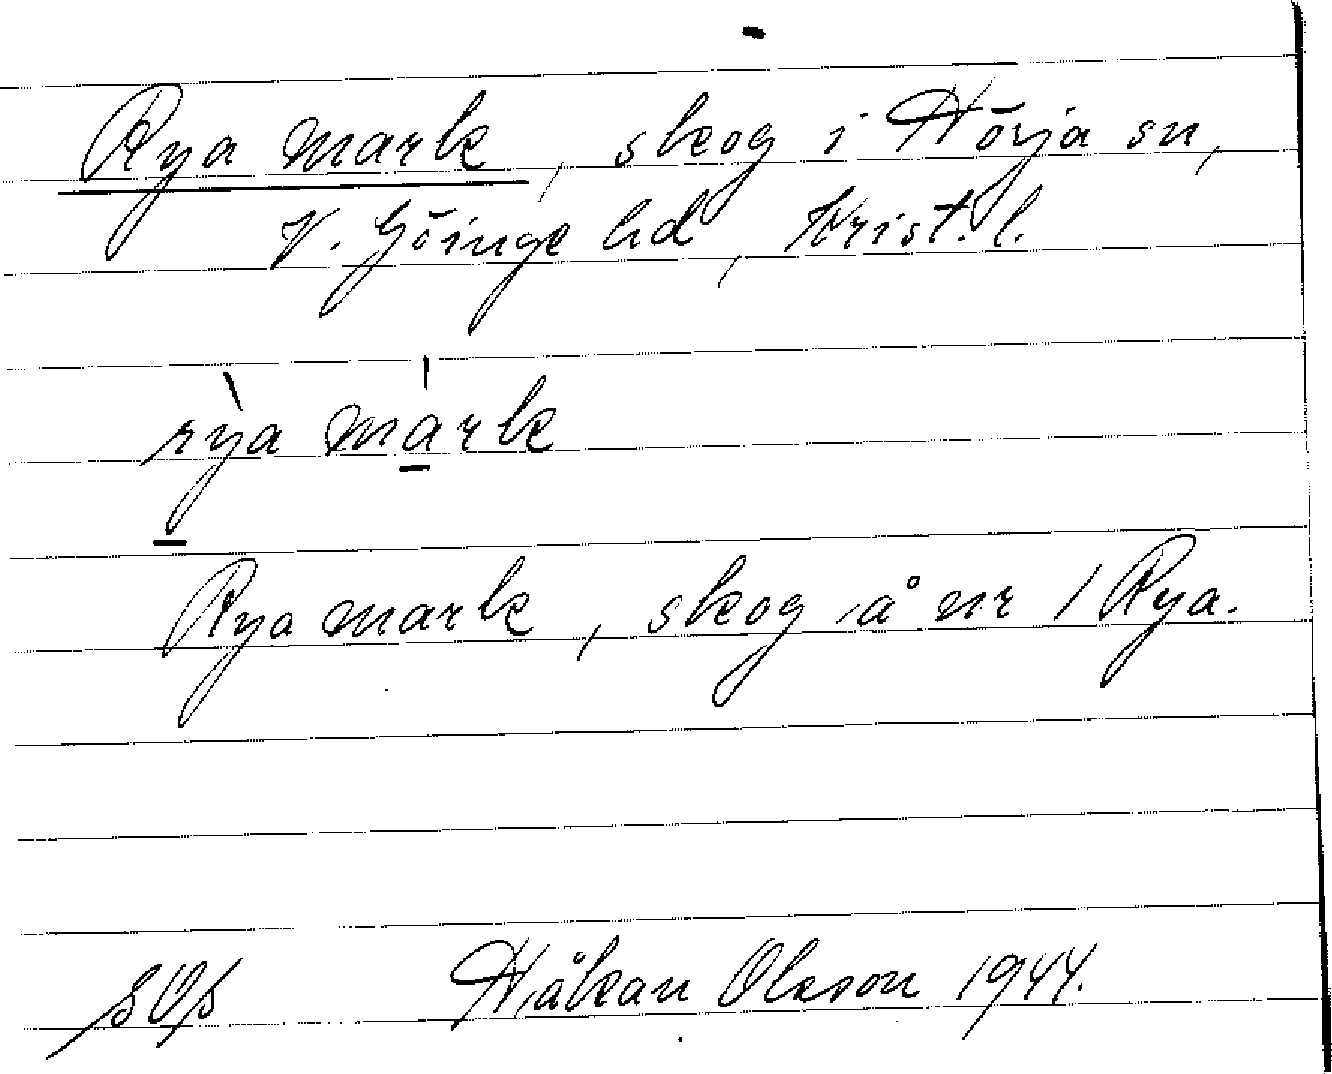 Rya mark, skog i Hörja sn,
V. Göinge hd, Krist. l.
rỳa mark
Rya mark, skog å nr 1 Rya.
Håkan Olsson 1944.